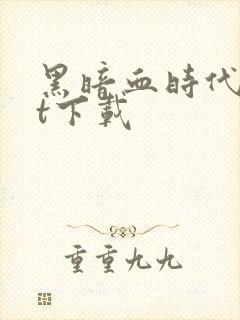 黑暗血時代
t下載
重重九九